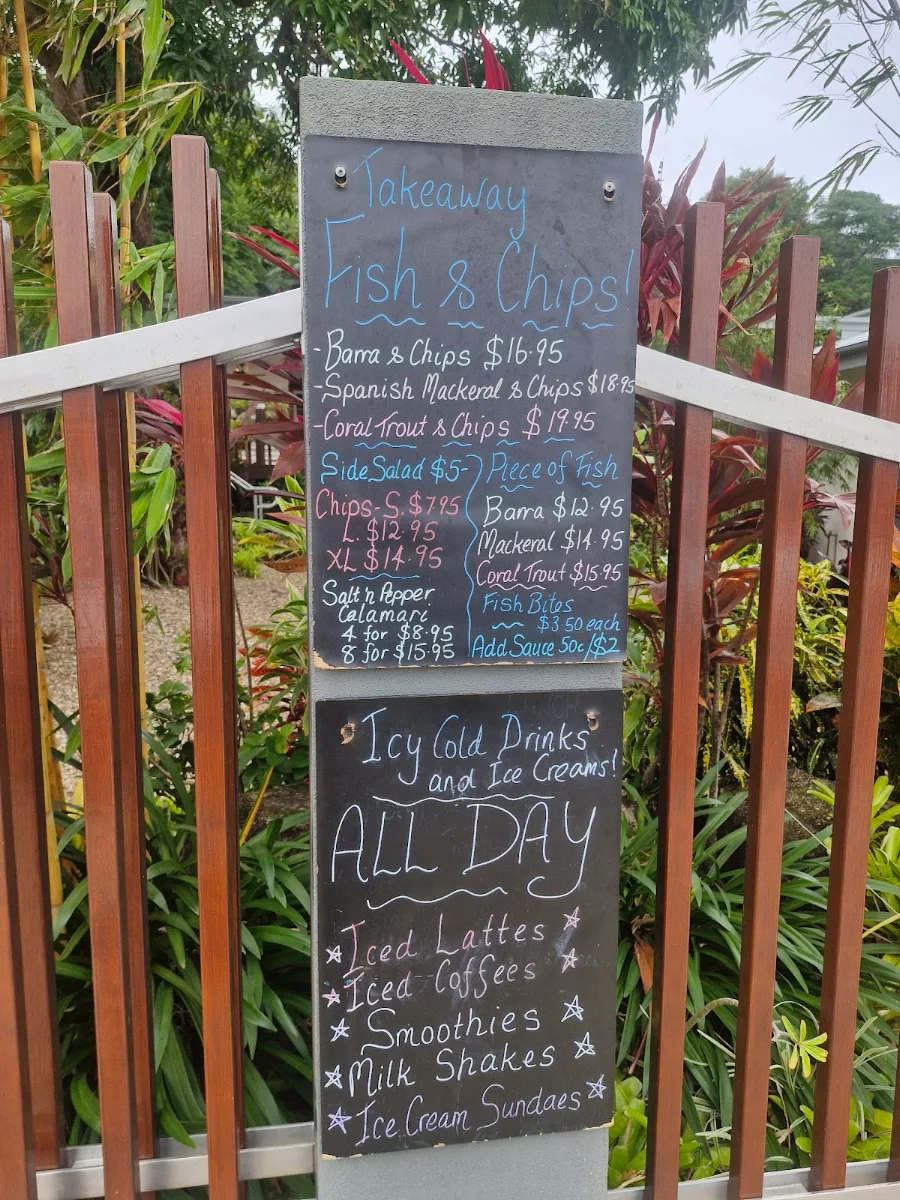 Takeaway
Fish & Chips!
-Barra & Chips $16.95
-Spanish Mackeral & Chips $18.95
-Coral Trout & Chips $19.95
Side Salad $5-
Chips-S. $7.95
L. $12.95
XL $14.95
Salt n Pepper
Calamari
4 for $8.95
8 for $15.95
Piece of Fish
Barra $12.95
Mackeral $14.95
Coral Trout $15.95
Fish Bites
$3.50 each
Add Sauce 50c/$2
Icy Cold Drinks
and Ice Creams!
ALL DAY
Iced Lattes
Iced Coffees
Smoothies
Milk Shakes
Ice Cream Sundaes